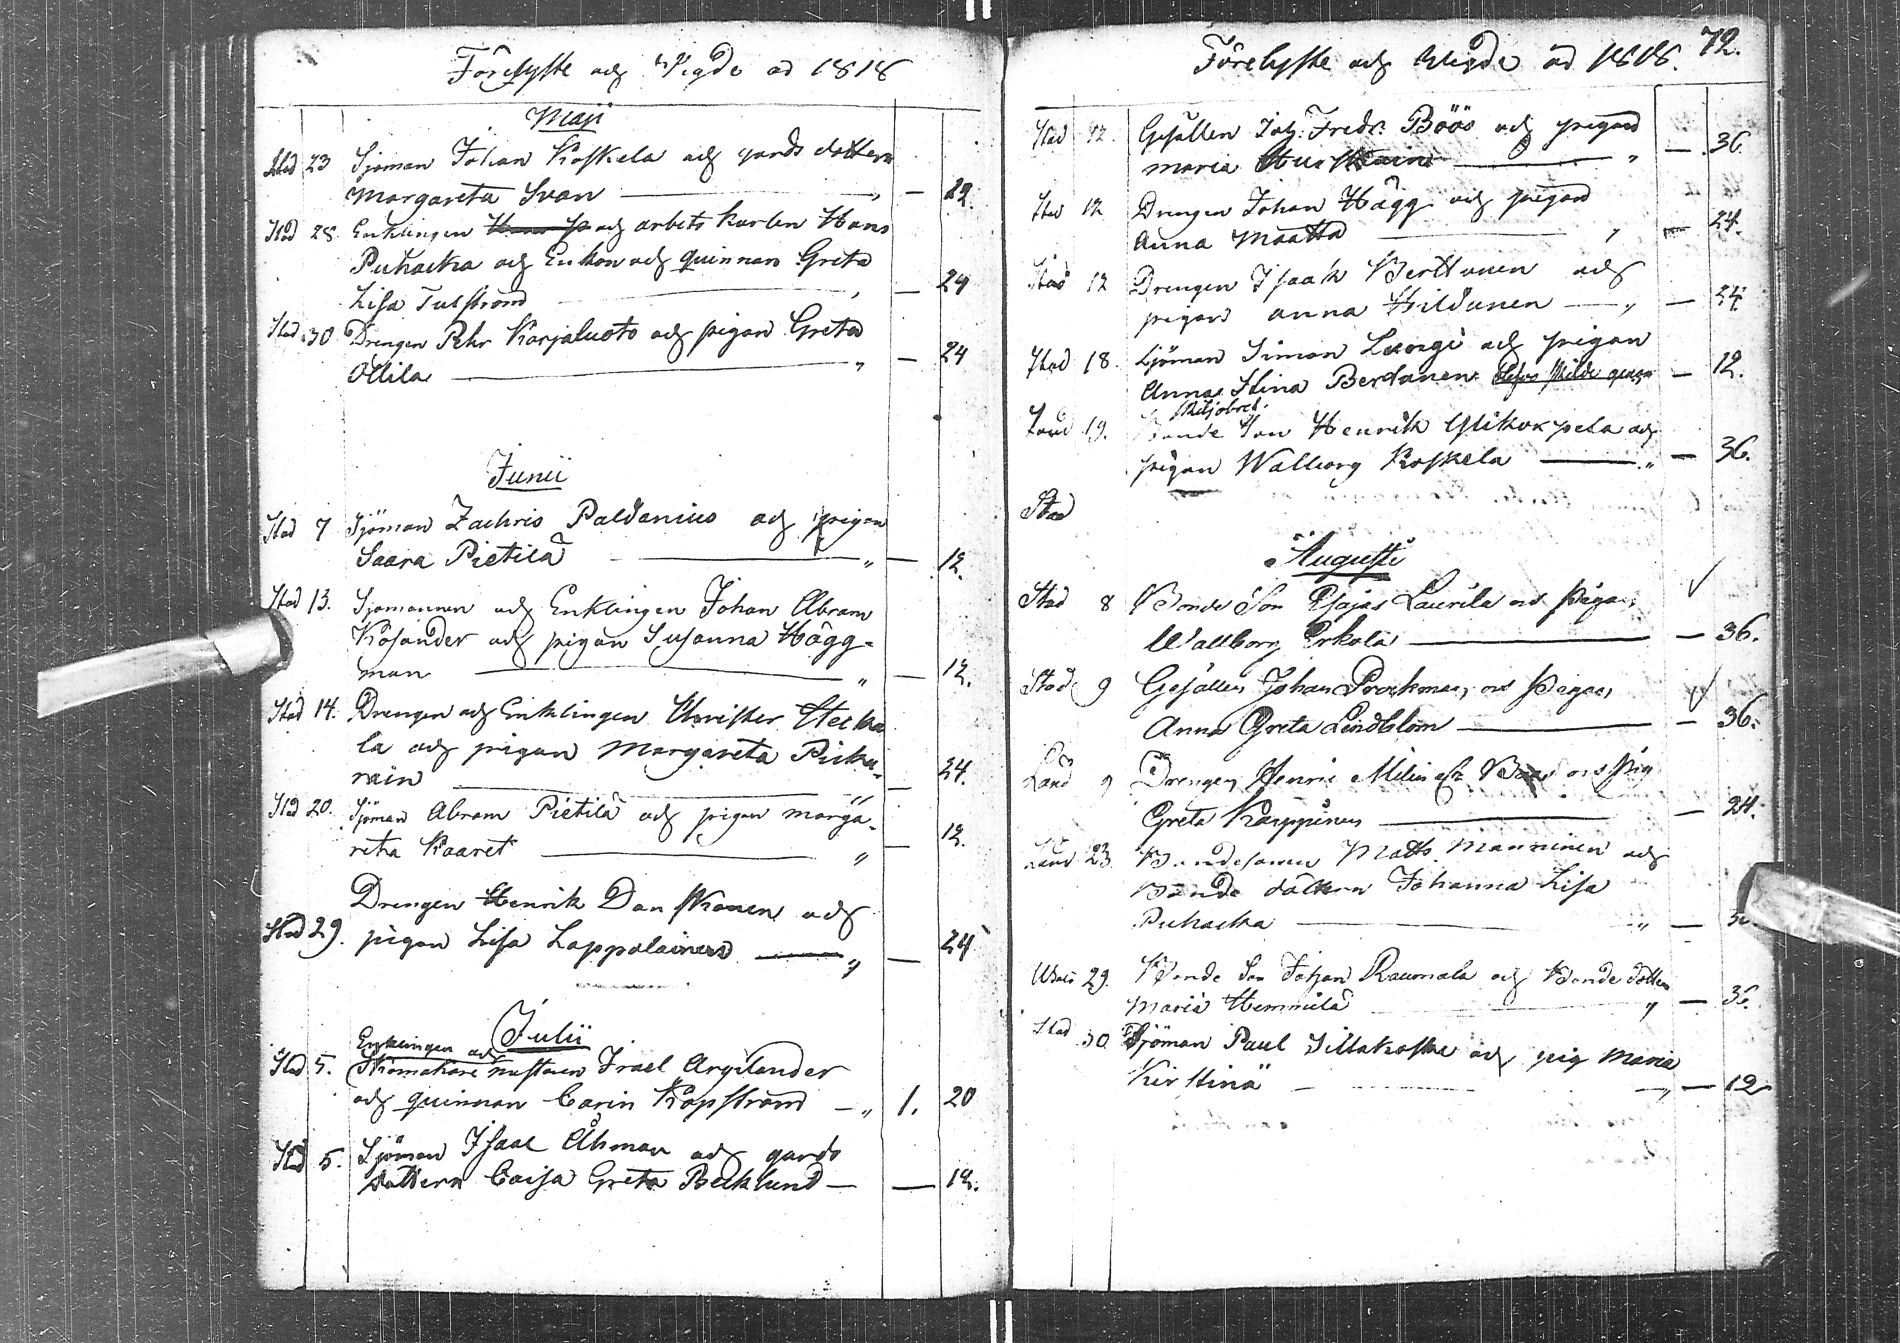 Förelyste och Vigde åd 1818
Maji
Stad 23 Sjöman Johan Koskela och gårds dottern
Margareta Svan — „ — 12.
Stad 28. Enklingen och arbets karlen Hans
Puhacka och Enkan och quinnan Greta
Lisa Tulström — 24
Stad 30 Drengen Pehr Karjaluoto och pigan Greta
Ollila — „ — 24
Junii
Stad 7 Sjöman Zachris Paldanius och pigan
Saara Pietilä — „ — 12.
Stad 13. Sjömannen och Enklingen Johan Abram
Kosander och pigan Susanna Hägg-
man — „ — 12.
Stad 14. Drengen och Enklingen Christer
la och pigan Margareta
rain — „ — 24.
Stad 20. Sjöman Abram Pietilä och pigan Marga-
reta Kaaret — „ — 12.
Drengen Henrik Danskanen och
Stad 29. pigan Lisa Lappalainen — „ — 24
Julii
Enklingen och
Stad 5. Skomakare mästaren Israel Argilander
och quinnan Carin Kopström — „ 1. 20
Stad 5. Sjöman Isaac Åhman och gårds
dottern Caisa Greta Becklund — — 12.
Förelyste och Vigde åd 1818. 72.
Stad 12. Gesällen Joh: Fredr. Böös och pigan
Maria — „ — 36.
Stad 12 Drengen Johan Hägg och pigan
Anna Maatta — „ — 24.
Stad 12 Drengen Isaak Berttunen och
pigan Anna Hildunen — „ — 24.
Stad 18. Sjöman Simon Lungi och pigan
Anna Stina Berdanen — 12.
Land 19. Bonde Son Henrik och
pigan Walborg Koskela — „ — 36.
Stad
Augusti
Stad 8 Bonde Son Esajas Laurila och Pigan
Wallborg Erkola — — 36.
Stad 9 Gesällen Johan Brockman, och Pigan,
Anna Greta Lindblom — — 36.
Land 9 Drengen Henric och Pig
Greta Karppinen — — 24.
Land 23 Bondesonen Matts Manninen och
Bonde dottern Johanna Lisa
Puhacka — „ —
29. Bonde Son Johan Raumala och Bonde dottern
Maria Hemmilä — „ — 36.
Stad 30 Sjöman Paul Sillakoske och pig Maria
Kirstinä — „ — 12